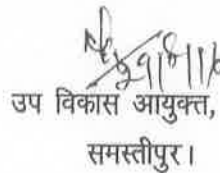 उप विकास आयुक्त,
समस्तीपुर।